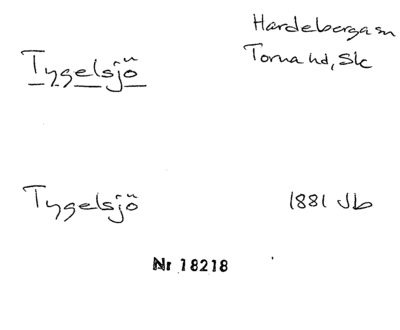 Hardeberga sn
Torna hd, Sk
Tygelsjö
Tygelsjö
1881 Jb
Nr 18218